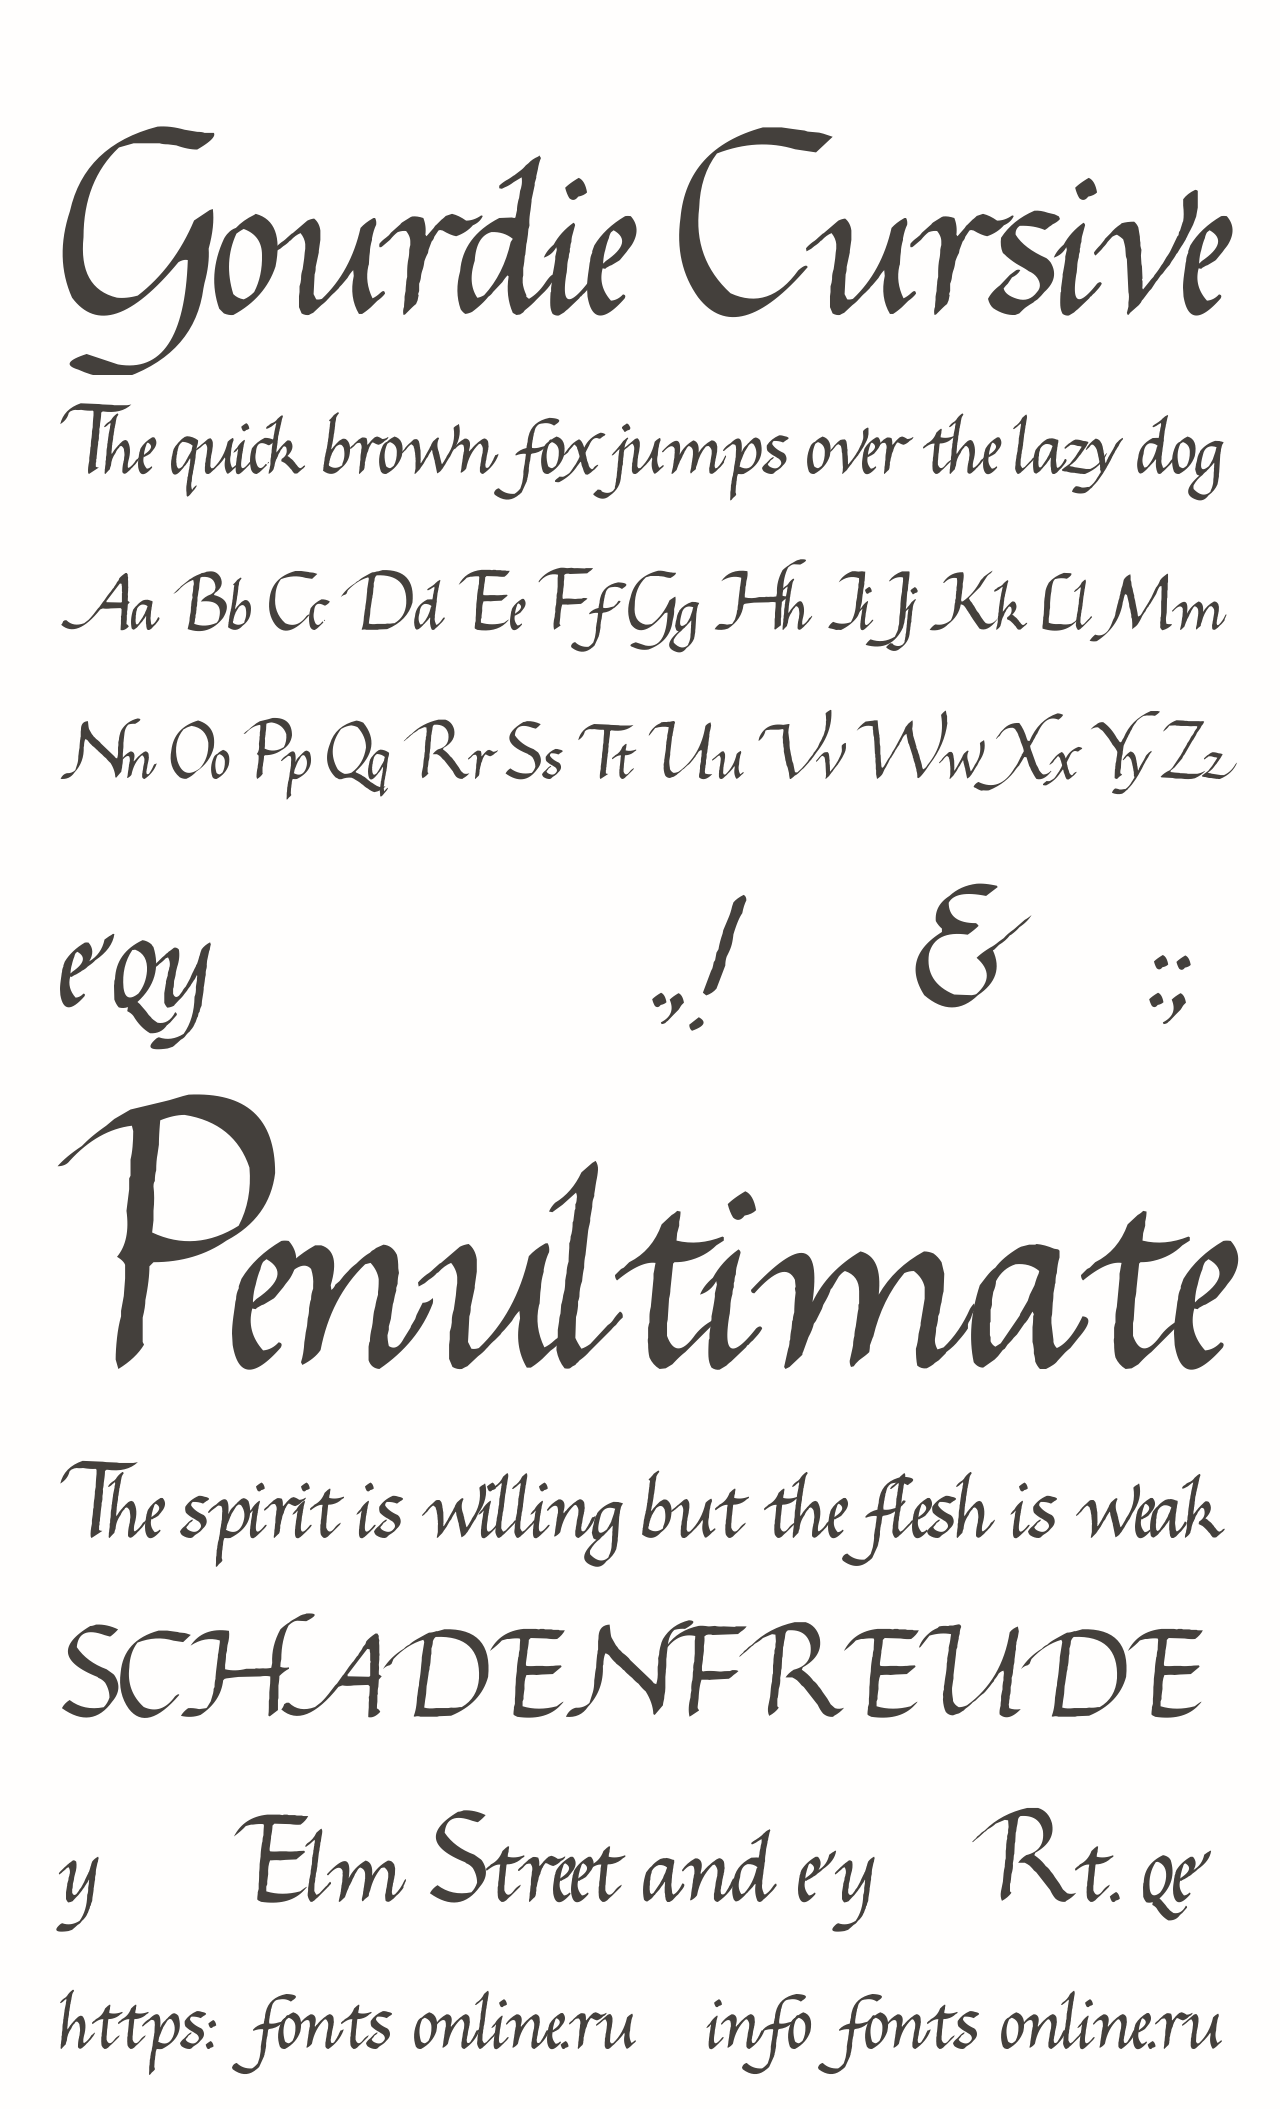 Gourdie Cursive
The quick brown fox jumps over the lazy dog
Aa Bb Cc Dd Ee Ff Gg Hh Ii Jj Kk Ll Mm
Nn Oo Pp Qq Rr Ss Tt Uu Vv Ww Xx Yy Zz
eQy .,! & :;
Penultimate
The spirit is willing but the flesh is weak
SCHADENFREUDE
y Elm Street and ey Rt. Qe
https: fonts online.ru info fonts online.ru